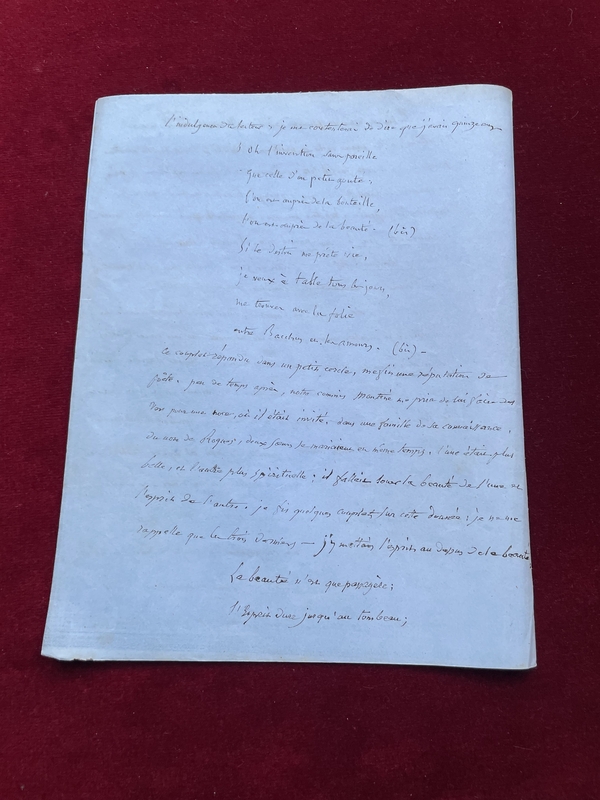 l'indulgence du lecteur, je me contenterai de dire que j'avais quinze ans
Oh l'invention sans pareille
que celle d'un petit
l'on est auprès de la bouteille,
l'on est auprès de la beauté. (bis)
Si le destin me prête vie,
je veux à table tous les jours,
me trouver avec la folie
entre Bacchus et les amours. (bis) —
Ce couplet répandu dans un petit cercle, me fit une réputation de
poète. peu de temps après, notre cousin me pria de lui faire des
pour une noce, où il était invité, dans une famille de sa connaissance,
du nom de Roques, deux sœurs se mariaient en même temps. l'une était plus
belle, et l'autre plus spirituelle; il fallait louer la beauté de l'une et
l'esprit de l'autre. je fis quelques couplets sur cette donnée; je ne me
rappelle que les trois derniers — j'y mettais l'esprit au dessus de la beauté
La beauté n'est que passagère;
l'Esprit dure jusqu'au tombeau;